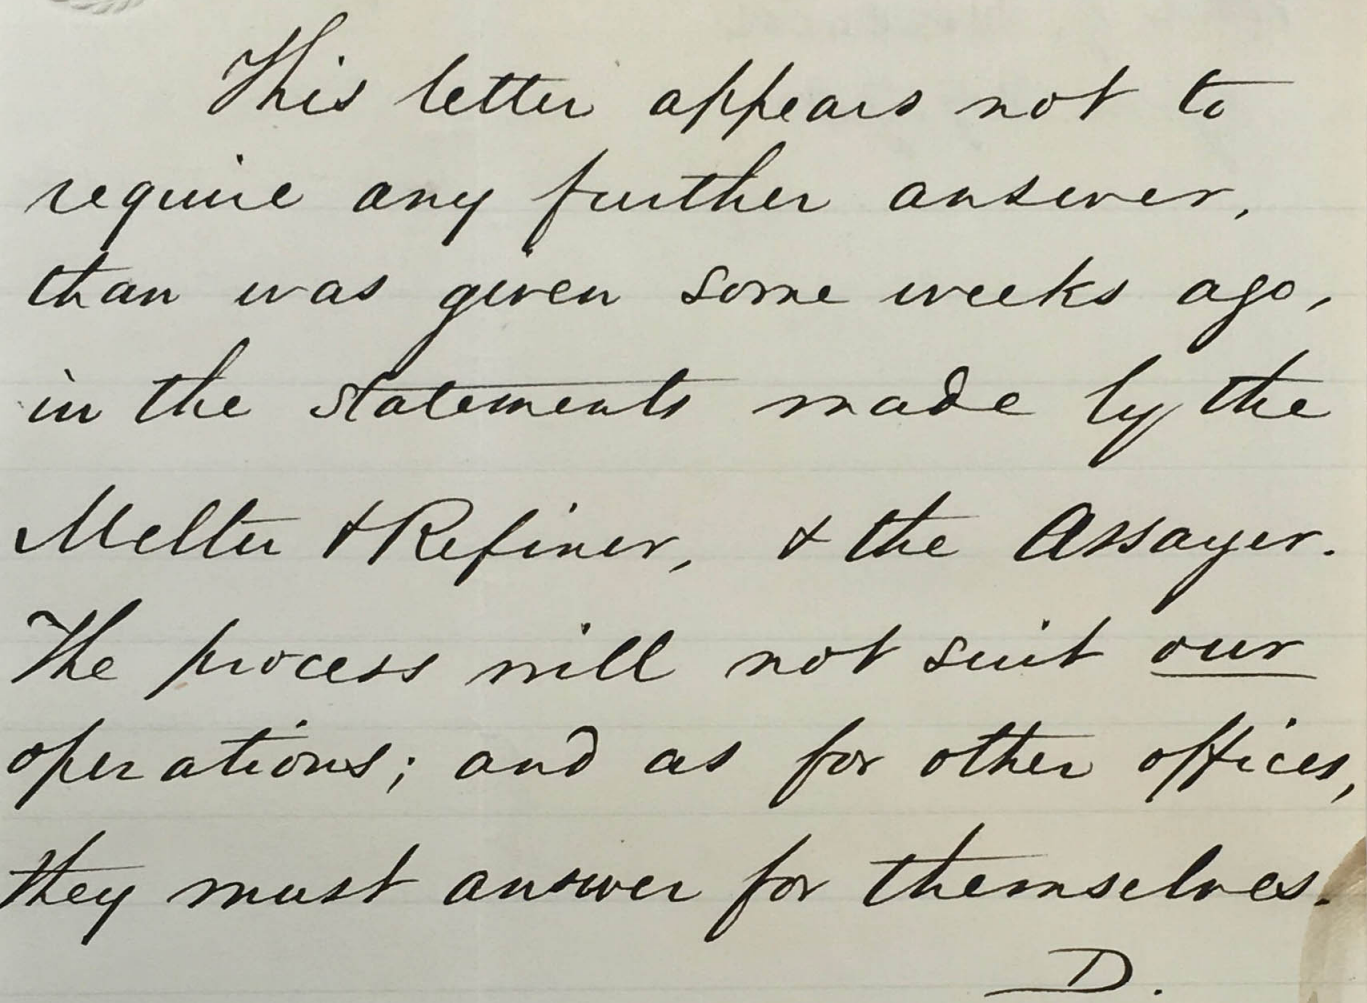 This letter appears not to
require any further answer,
than was given some weeks ago,
in the statements made by the
Melter & Refiner, & the Assayer.
The process will not suit our
operations; and as for other offices,
they must answer for themselves.
D.